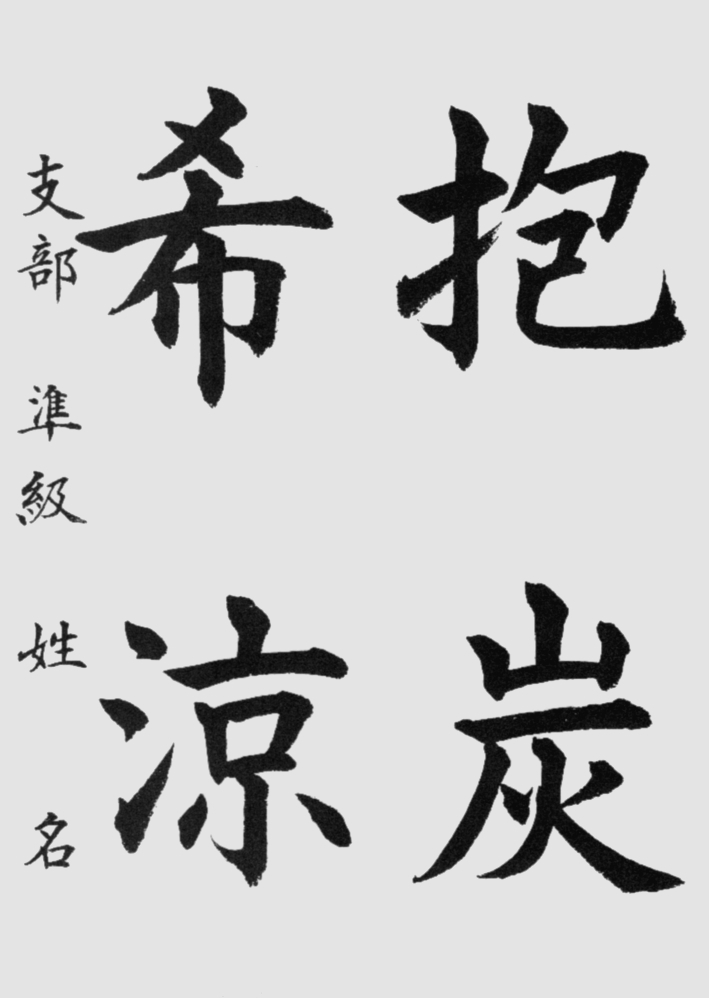 抱炭
希涼
支部 準級 姓名